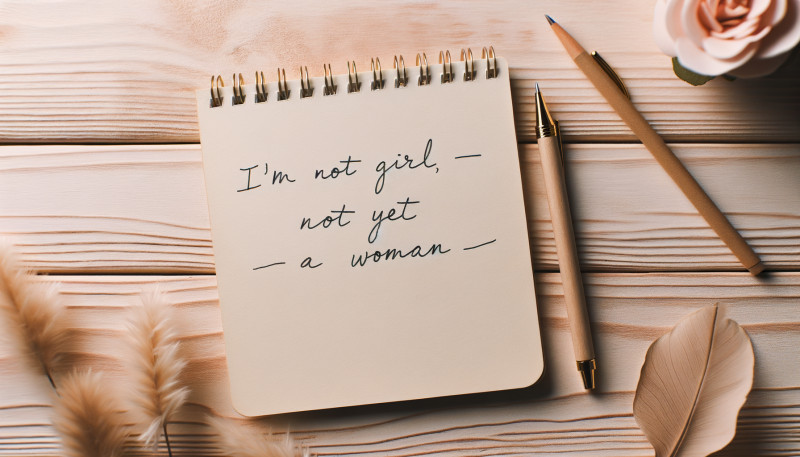 I'm not girl, —
not yet
— a woman —